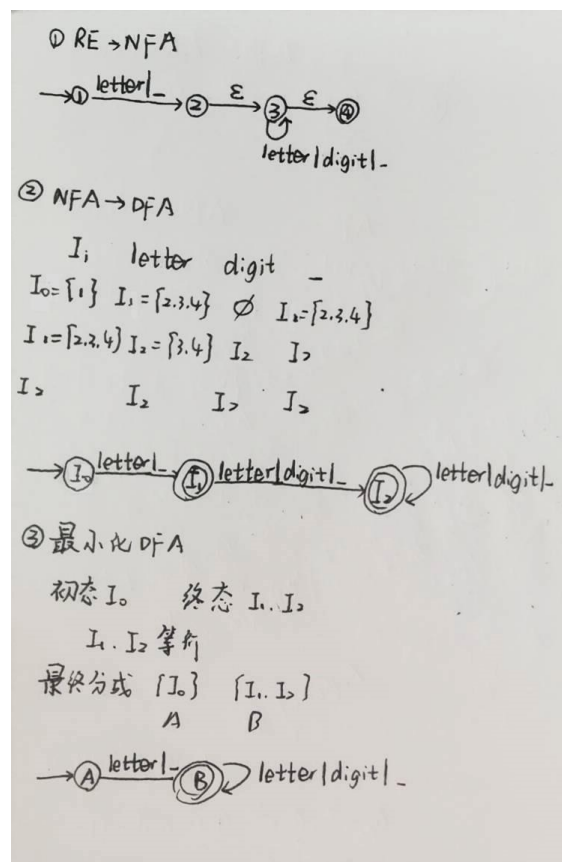 ① RE→NFA
→① letter|_ → ② ε → ③ ε → ④
letter|digit|_
② NFA→DFA
Iᵢ letter digit _
I₀={1} I₁={2.3.4} ∅ I₁={2.3.4}
I₁={2.3.4} I₂={3.4} I₂ I₂
I₂ I₂ I₂ I₂
→ I₀ letter|_ I₁ letter|digit|_ → I₂ letter|digit|_
③ 最小化 DFA
初态 I₀ 终态 I₁. I₂
I₁. I₂ 等价
最终分成 {I₀} {I₁. I₂}
A B
→ A letter|_ B letter|digit|_